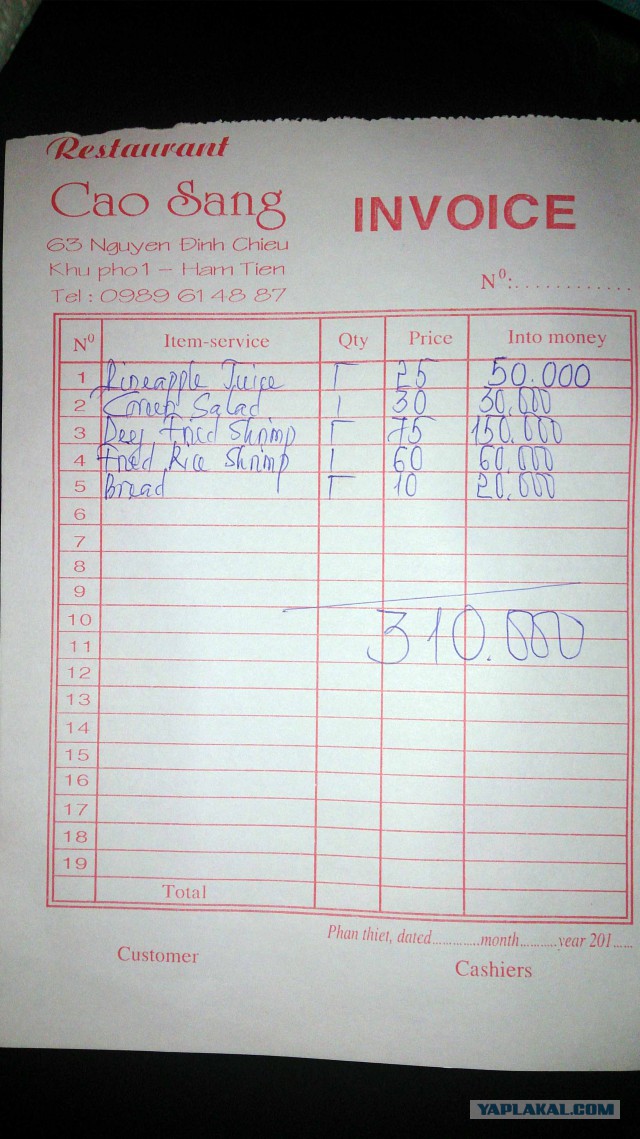 Restaurant
Cao Sang
INVOICE
63 Nguyen Đinh Chieu
Khu pho 1 – Ham Tien
Tel : 0989 61 48 87
N⁰:............
N⁰ Item-service Qty Price Into money
1 Pineapple Juice 25 50.000
2 Salad 1 30 30.000
3 Deep Fried Shrimp 75 150.000
4 Fried Rice Shrimp 1 60 60.000
5 Bread 10 20.000
6
7
8
9
10 310.000
11
12
13
14
15
16
17
18
19
Total
Phan thiet, dated.............month..........year 201......
Customer
Cashiers
YAPLAKAL.COM